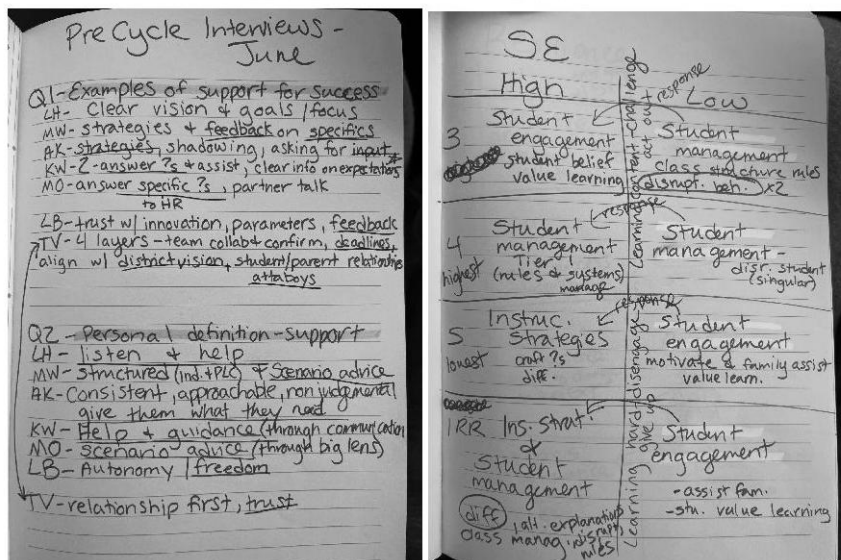 Pre Cycle Interviews -
June
Q1-Examples of support for success
LH- Clear vision & goals / focus
MW- strategies & feedback on specifics
AK-strategies, shadowing, asking for input
KW-2-answer ?s & assist, clear info on expectations
MO-answer specific ?s, partner talk
to HR
LB-trust w/ innovation, parameters, feedback
TV-4 layers-team collab & confirm, deadlines,
align w/ district vision, student/parent relationships
attaboys
Q2 - Personal definition-support
LH- listen & help
MW-structured (ind. + PLC) & scenario advice
AK-Consistent, approachable, nonjudgemental
give them what they need
KW-Help & guidance (through communication
MO-scenario advice (through big lens)
LB-Autonomy / freedom
TV-relationship first, trust
SE
High
Low
response
3
Student
engagement
student belief
value learning
Student
management
class structure rules
disrupt. beh. x2
Learning content-challenge
act out
response
4
highest
Student
management
Tier 1
(rules & systems)
manage
Student
management-
disr. student
(singular)
response
5
lowest
Instruc.
Strategies
craft ?s
diff.
Student
engagement
motivate & family assist
value learn.
Learning hard-disengage
give up
1RR
Ins. Strat.
&
Student
management
diff, alt. explanation
class manag. disrupt,
rules
Student
engagement
-assist fam.
-stu. value learning